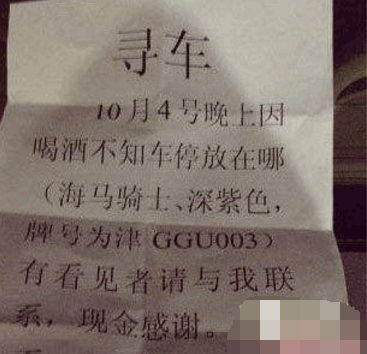 寻车
10月4号晚上因
喝酒不知车停放在哪
（海马骑士、深紫色，
牌号为津 GGU003）
有看见者请与我联
系，现金感谢。